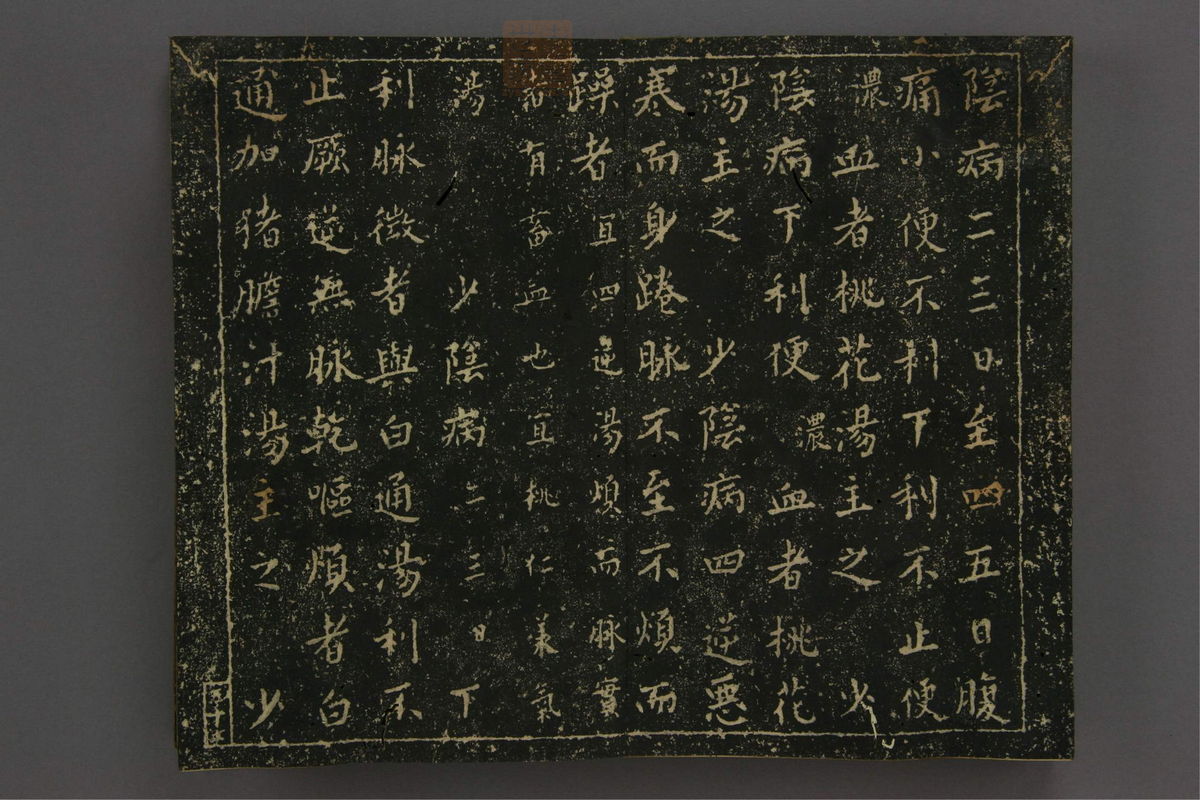 陰病二三日至四五日腹
痛小便不利下利不止便
濃血者桃花湯主之 少
陰病下利便濃血者桃花
湯主之 少陰病四逆惡
寒而身踡脉不至不煩而
躁者宜四逆湯煩而脉實
若有畜血也宜桃仁氣
湯 少陰病二三日下
利脉微者與白通湯利不
止厥逆無脉乾嘔煩者白
通加猪膽汁湯主之 少